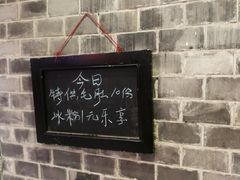 今日
特供毛肚10份
冰粉1元乐享